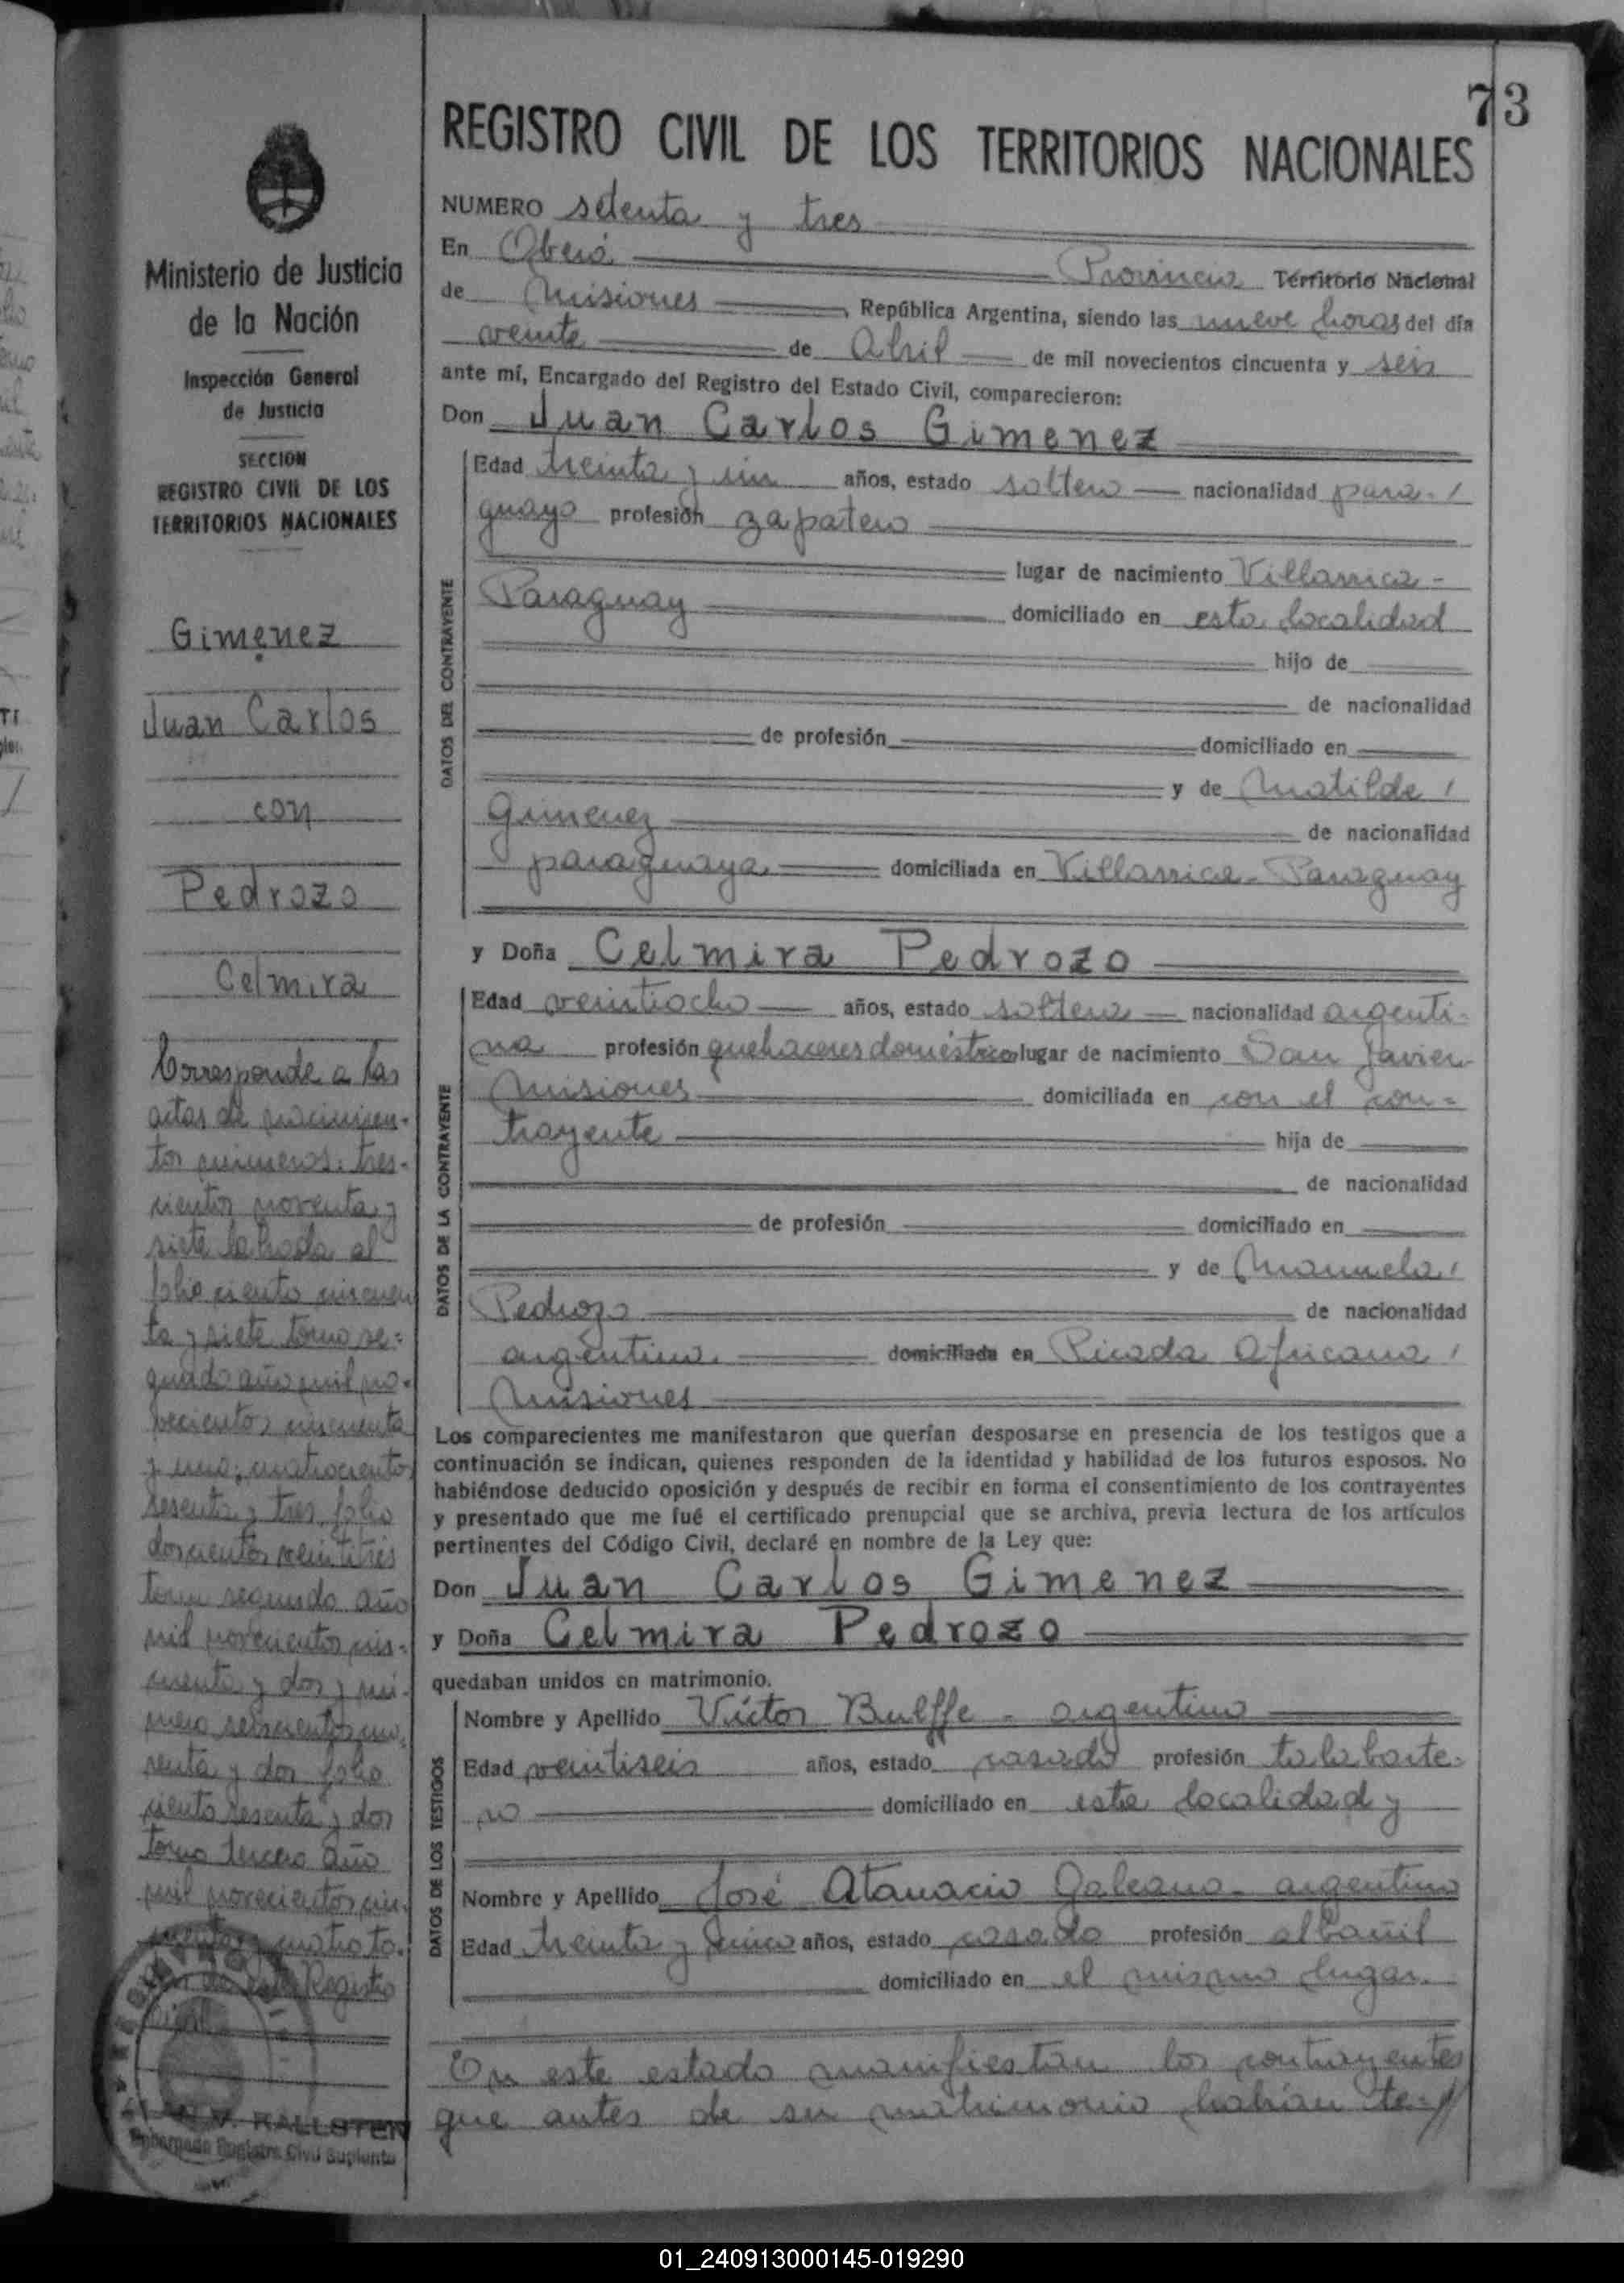 73
REGISTRO CIVIL DE LOS TERRITORIOS NACIONALES
Ministerio de Justicia
de la Nación
Inspección General
de Justicia
SECCION
REGISTRO CIVIL DE LOS
TERRITORIOS NACIONALES
Gimenez
Juan Carlos
con
Pedrozo
Celmira
Corresponde a las
actas de nacimien-
tos números: tres-
cientos noventa y
siete labrada al
folio ciento cincuen
ta y siete tomo se=
gundo año mil no-
vecientos cincuenta
y uno; cuatrocientos
sesenta y tres folio
doscientos veintitrés
tomo segundo año
mil novecientos cin-
cuenta y dos y nú-
mero seiscientos no
venta y dos folio
ciento sesenta y dos
tomo tercero año
mil novecientos cin-
cuenta y cuatro to-
de este Registro
Civil
KALLSTEN
Encargado Registro Civil Suplente
NUMERO setenta y tres
En Oberá Provincia Territorio Nacional
de Misiones, República Argentina, siendo las nueve horas del día
veinte de Abril de mil novecientos cincuenta y seis
ante mí, Encargado del Registro del Estado Civil, comparecieron:
Don Juan Carlos Gimenez
DATOS DEL CONTRAYENTE
Edad treinta y un años, estado soltero nacionalidad para-/
guayo profesión zapatero
lugar de nacimiento Villarrica -
Paraguay domiciliado en esta localidad
hijo de
de nacionalidad
de profesión domiciliado en
y de Matilde /
Gimenez de nacionalidad
paraguaya domiciliada en Villarrica - Paraguay
y Doña Celmira Pedrozo
DATOS DE LA CONTRAYENTE
Edad veintiocho años, estado soltera nacionalidad argenti-
na profesión quehaceres domésticos lugar de nacimiento San Javier-
Misiones domiciliada en con el con=
trayente hija de
de nacionalidad
de profesión domiciliado en
y de Manuela /
Pedrozo de nacionalidad
argentina domiciliada en Picada Africana /
Misiones
Los comparecientes me manifestaron que querían desposarse en presencia de los testigos que a
continuación se indican, quienes responden de la identidad y habilidad de los futuros esposos. No
habiéndose deducido oposición y después de recibir en forma el consentimiento de los contrayentes
y presentado que me fué el certificado prenupcial que se archiva, previa lectura de los artículos
pertinentes del Código Civil, declaré en nombre de la Ley que:
Don Juan Carlos Gimenez
y Doña Celmira Pedrozo
quedaban unidos en matrimonio.
DATOS DE LOS TESTIGOS
Nombre y Apellido Víctor Bulffe - argentino
Edad veintiseis años, estado casado profesión talabarte-
ro domiciliado en esta localidad y
Nombre y Apellido José Atanacio Galeano - argentino
Edad treinta y cinco años, estado casado profesión albañil
domiciliado en el mismo lugar.
En este estado manifiestan los contrayentes
que antes de su matrimonio habían te-//
01_240913000145-019290